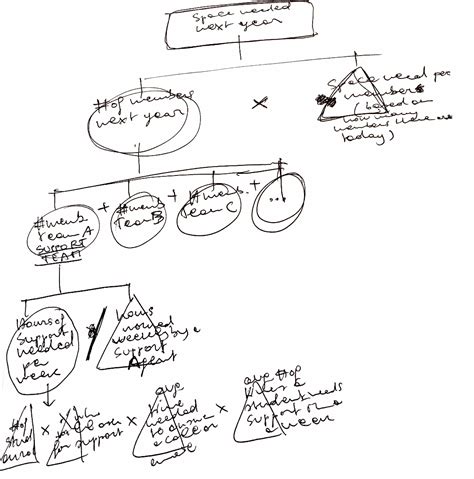 Space needed
next year
# of members
next year
x
Space need per
member
(based on
how many
members there are
today)
# memb
team A
SUPPORT
TEAM
+
# memb
team B
+
# memb.
team C
+
...
Hours of
support
needed
per
week
/
hours
worked
weekly by a
support
Agent
# of
stud
x
who
for support
x
ave
time
needed
to answer
a call or
email
x
ave # of
times a
student needs
support in a
week